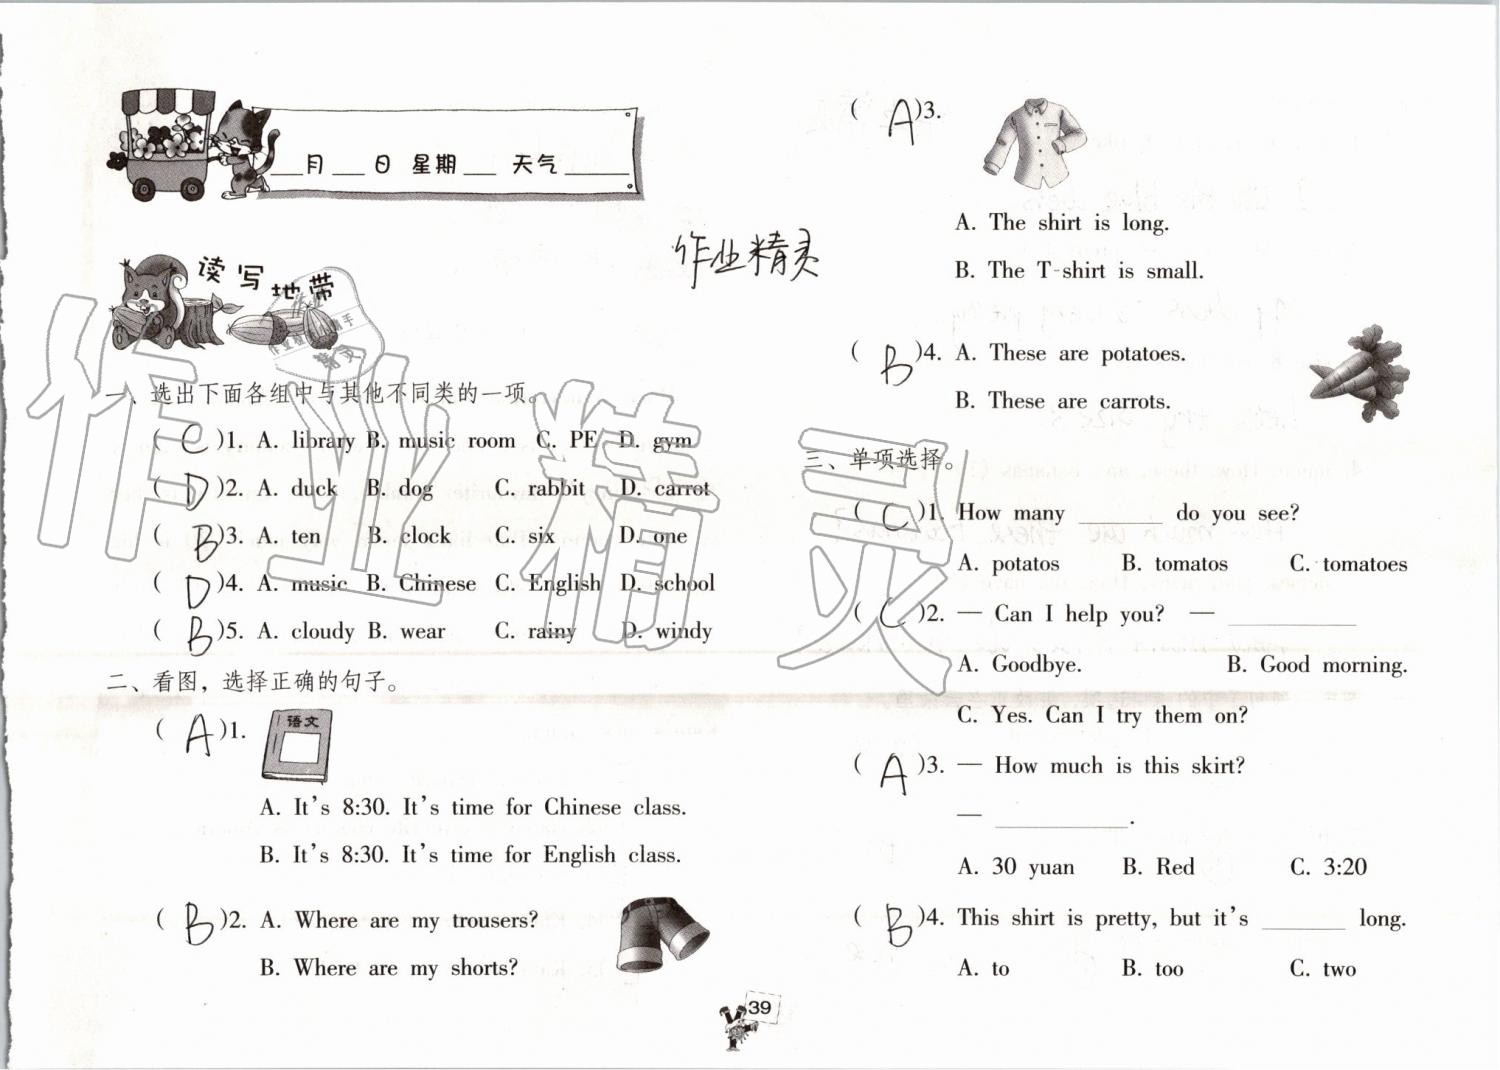 ____月____日 星期____ 天气______
读写地带
作业精灵
一、选出下面各组中与其他不同类的一项。
( C )1. A. library B. music room C. PE D. gym
( D )2. A. duck B. dog C. rabbit D. carrot
( B )3. A. ten B. clock C. six D. one
( D )4. A. music B. Chinese C. English D. school
( B )5. A. cloudy B. wear C. rainy D. windy
二、看图，选择正确的句子。
( A )1.
语文
A. It's 8:30. It's time for Chinese class.
B. It's 8:30. It's time for English class.
( B )2. A. Where are my trousers?
B. Where are my shorts?
( A )3.
A. The shirt is long.
B. The T-shirt is small.
( B )4. A. These are potatoes.
B. These are carrots.
三、单项选择。
( C )1. How many ______ do you see?
A. potatos B. tomatos C. tomatoes
( C )2. — Can I help you? — ______
A. Goodbye. B. Good morning.
C. Yes. Can I try them on?
( A )3. — How much is this skirt?
— ______.
A. 30 yuan B. Red C. 3:20
( B )4. This shirt is pretty, but it's ______ long.
A. to B. too C. two
39
作业精灵